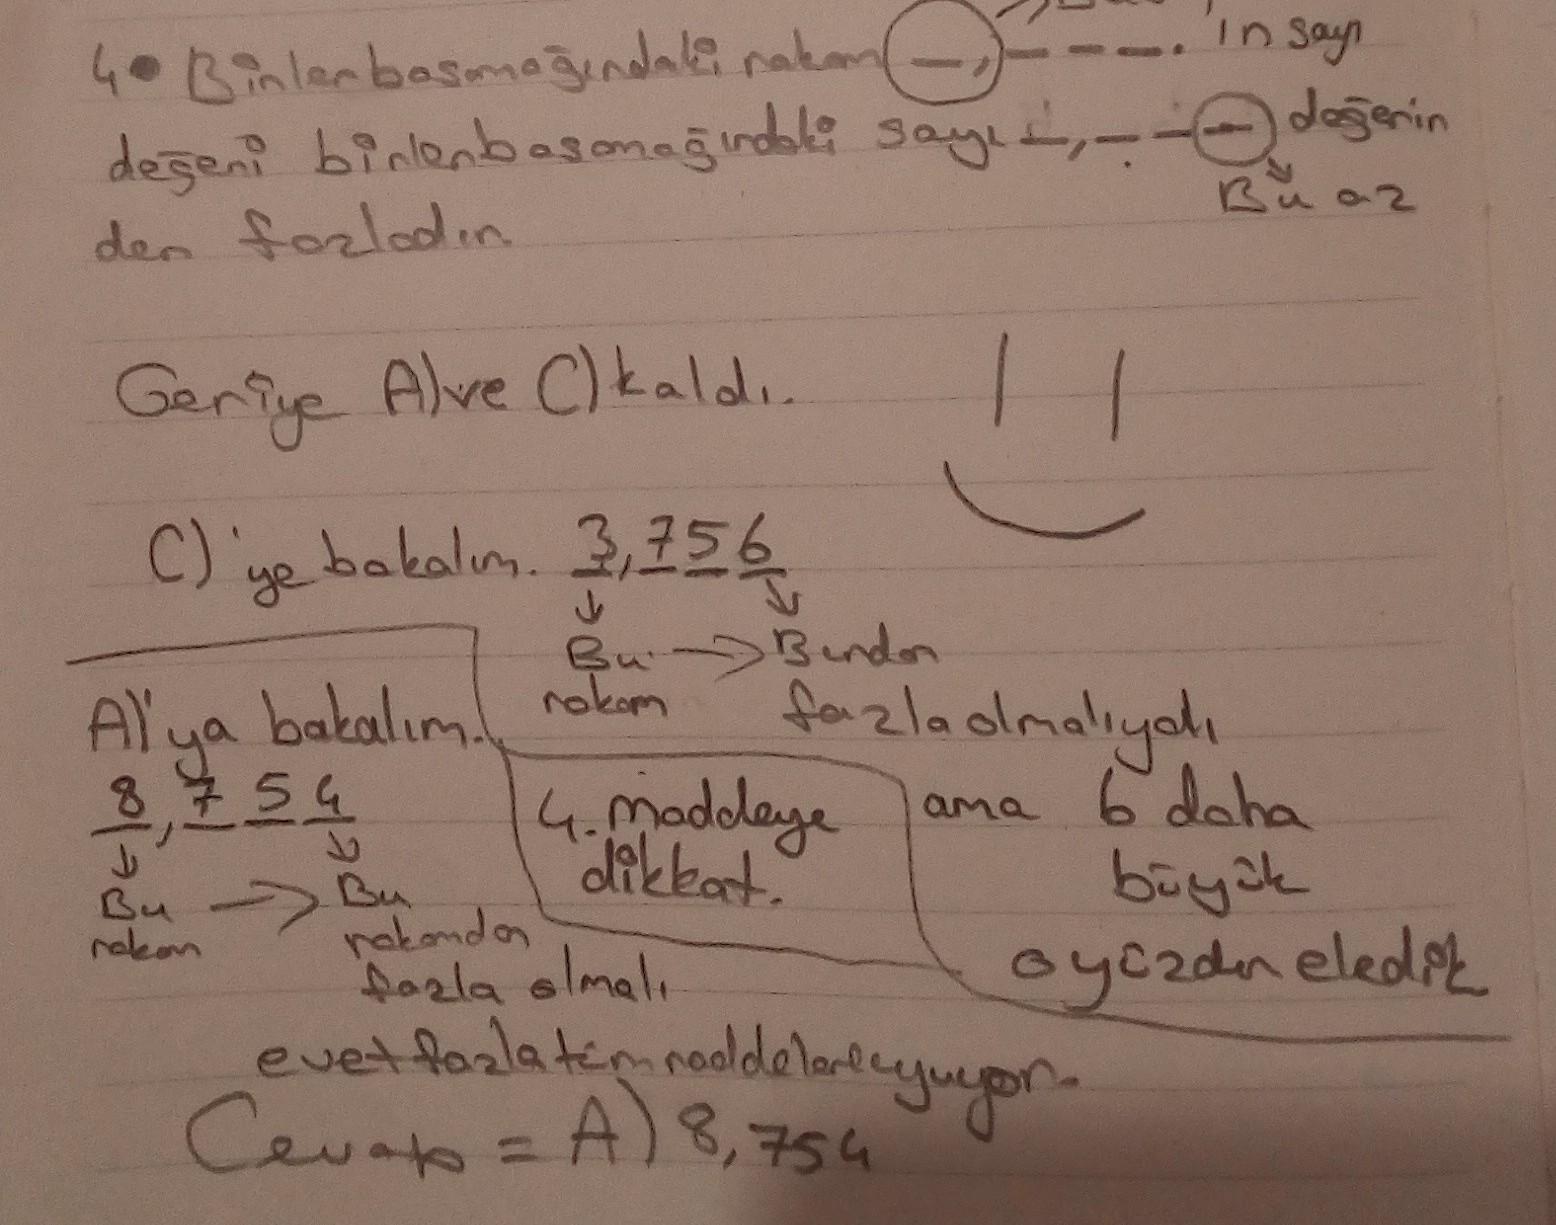 4• Binler basamağındaki rakam _,_ _ _. 'in sayı
değeri binler basamağındaki sayı _,_ _ _ değerin
Bu az
den fazladır.
Geriye A) ve C) kaldı.
C)'ye bakalım. 3,756
Bu → Bundan
rakam fazla olmalıydı
A)'ya bakalım.
8,754
4. maddeye
dikkat.
ama 6 daha
büyük
o yüzden eledik
Bu → Bu
rakam rakamdan
fazla olmalı
evet fazla tüm maddelere uyuyor.
Cevap = A) 8,754